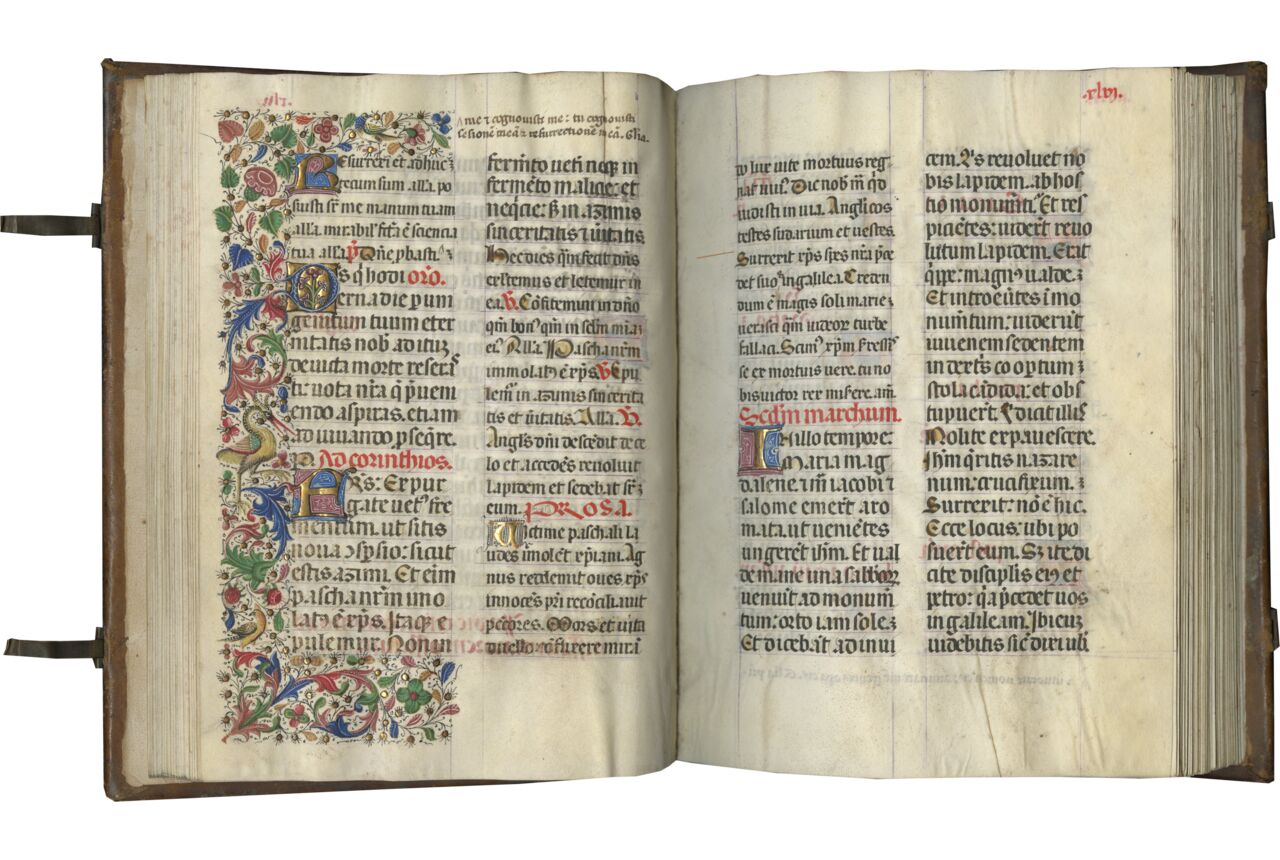 me ⁊ cognovisti me: tu cognovisti
sesionē meā ⁊ resurrectionē meā. Gl̄a.
Resurrexi et adhuc
tecum sum all'a. po
suisti sr̄ me manum tuam
all'a. mirabil' fc̄a ē sciencia
tua all'a. p̄ Dn̄e pbasti
Ds q̇ hodi orō.
erna die p unī
genitum tuum eter
nitatis nob̄ aditū
devicta morte reserasti
ti: vota nr̄a q̄ p̄veni
endo aspiras. etiam
adiuvando p̄seq̄re.
P. Ad corinthios.
Frs: Expur
gate vet' fre
mentum. ut sitis
nova ↄspsio: sicut
estis azimi. Et eim̄
pascha nr̄m imo
latꝰ ē xp̄s. Itaq̄ e
pulemur. Non in
fermēto veti neqꝫ in
fermēto malicie: et
neqͥcie: sꝫ in azimis
sinceritatis ⁊ ūitatis.
Hec dies qm̄ fecit dn̄s
exltemus et letemur in
ea. V. Cōfitemini dn̄o
qm̄ bonꝰ qm̄ in sclm̄ mīa
eiꝰ. All'a. Pascha nr̄m
immolatꝰ ē xp̄s V. Epu
lem̄ in azimis sincerita
tis et ūitatis. All'a. V.
Angl's dn̄i descēdit de ce
lo et accedēs revoluit
lapidem et sedebat sr̄
eum. PROSA.
Victime paschali la
udes īmolēt xp̄iani. Ag
nus redemit oves xp̄s
innocēs pr̄i recōciliavit
pctores. Mors et vita
duello cōflixere miri
xlvj.
do dux vite mortuus reg
nat vivꝰ. Dic nob̄ m̄ qd
vidisti in via. Anglicos
testes sudarium et vestes.
Surrexit xp̄s spes mr̄a p̄ce
det suoꝰ in galilea. Creden
dum ē magis soli marie
veraci qm̄ iudeoꝝ turbe
fallaci. Scimꝰ xp̄m surrexis
se ex mortuis vere. tu no
bis victor rex miserere. am̄
Scdm̄ marchum.
In illo tempore:
Maria mag
dalene. ⁊ m̄ iacobi ⁊
salome emerūt aro
mata. ut veniētes
ungerēt ihm̄. Et val
de mane una sabbatoꝝ
veniūt ad monumē
tum: orto iam sole.
Et dicebāt ad invi
cem. Qͥs revolvet no
bis lapidem. ab hos
tio monumēti. Et res
piciētes: viderūt revo
lutum lapidem. Erat
q̄ppe: magnꝰ valde.
Et introeūtes ī mo
numētum: viderūt
iuvenem sedentem
in dextis coopertum
stola cādida: et obs
tupuerūt. Qͥ dicit illis
Nolite expavescere.
Ihm̄ q̄ritis nazare
num: crucifixum.
Surrexit: nō ē hic.
Ecce locus: ubi po
suerūt eum. Sꝫ ite. di
cite discip̄lis eiꝰ et
petro: q̄a p̄cedet vos
in galileam. Ibi eū
videbitis: sic̄ dixit vob̄